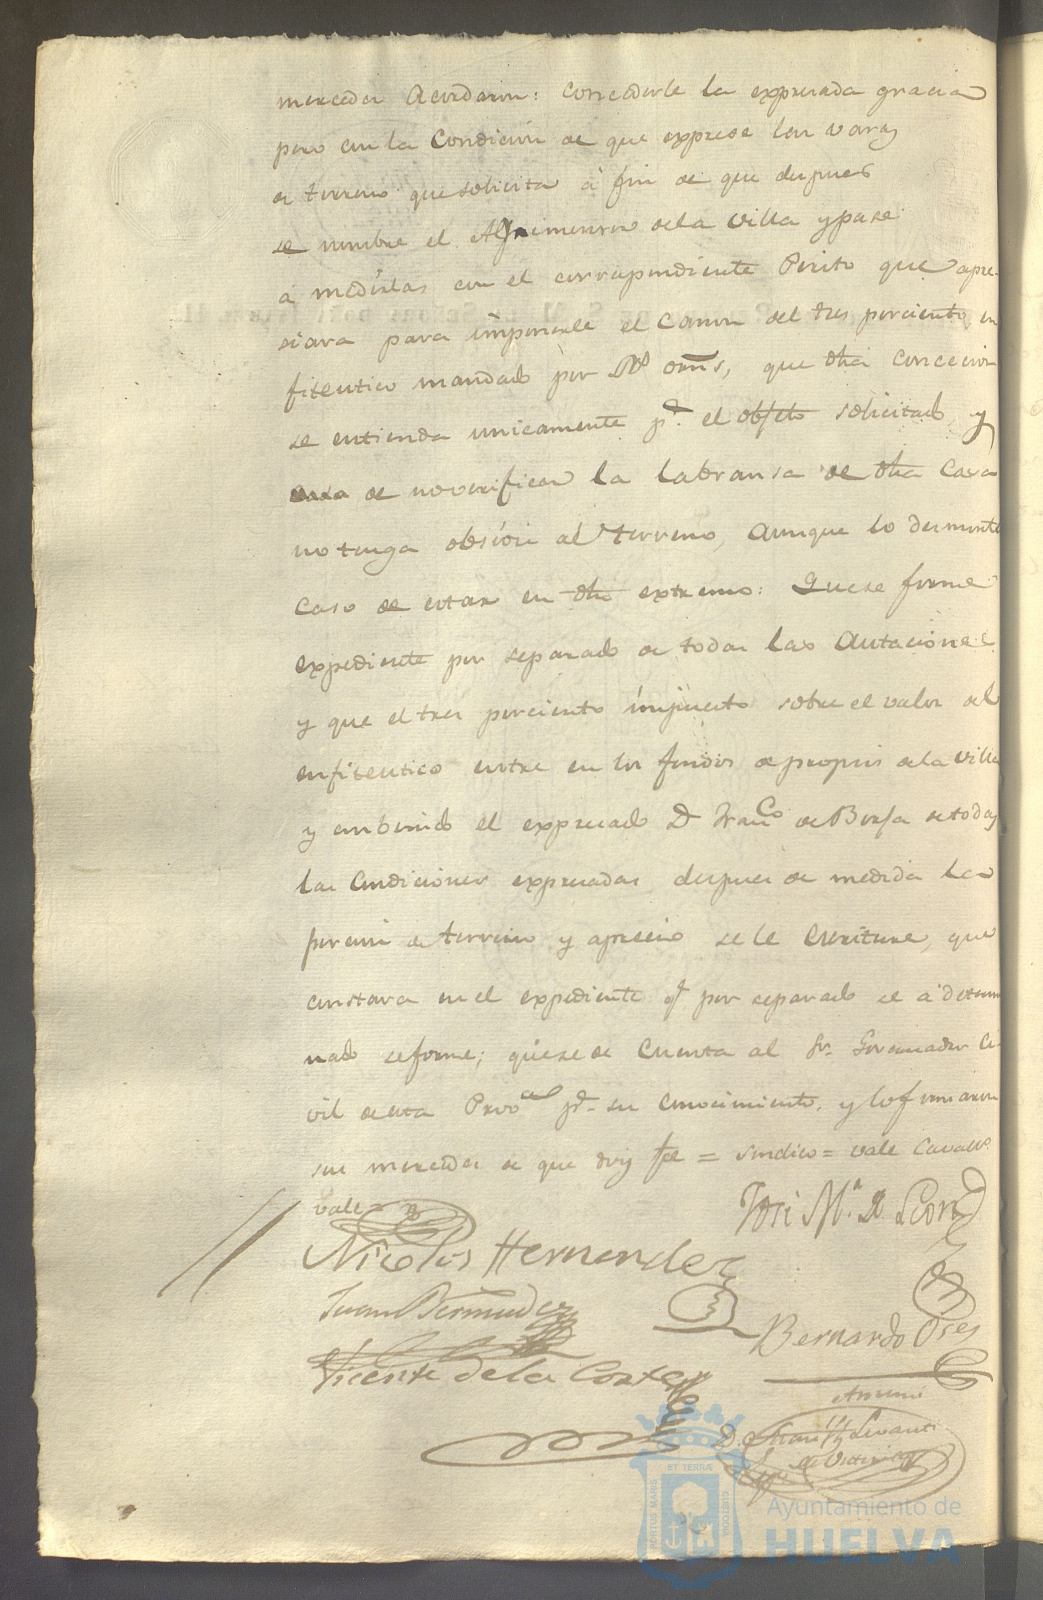 mercedes Acordaron: concederle la expresada gracia
pero con la Condicion de que exprese las varas
de terreno que solicita á fin de que despues
se nombre el Agrimensor de la villa y pase
á medirlas con el correspondiente Perito que apre-
siara para imponerle el Canon del tres porciento en
fiteutico mandado por Rs orns, que dha concecion
se entienda unicamente pa. el objeto solicitado, y
de no verificar la labransa de dha Casa
no tenga obsion al terreno, aunque lo desmonte
caso de estar en dho extremo: Que se forme
expediente por separado de todas las Autaciones
y que el tres porciento impuesto sobre el valor del
enfiteutico entre en los fondos de propios de la villa
y combenido el expresado Dn Franco de Borja de todas
las Condiciones expresadas despues de medida la
porcion de terreno y apresio se le Escriture, que
constara en el expediente qe por separado se a determi
nado se forme; quese de Cuenta al Sr. Governador Ci
vil de esta Provoa pa. su conocimiento. y lo firmaron
sus mercedes de que doy fee = sindico = vale Cavallo
vale
José Ma. de Leon
Nicolás Hernandez
Juan Bermudez
Bernardo Oses
Vicente de la Corte
Ante mi
D.
ET TERRÆ
PORTUS MARIS
CUSTODIA
Ayuntamiento de
HUELVA